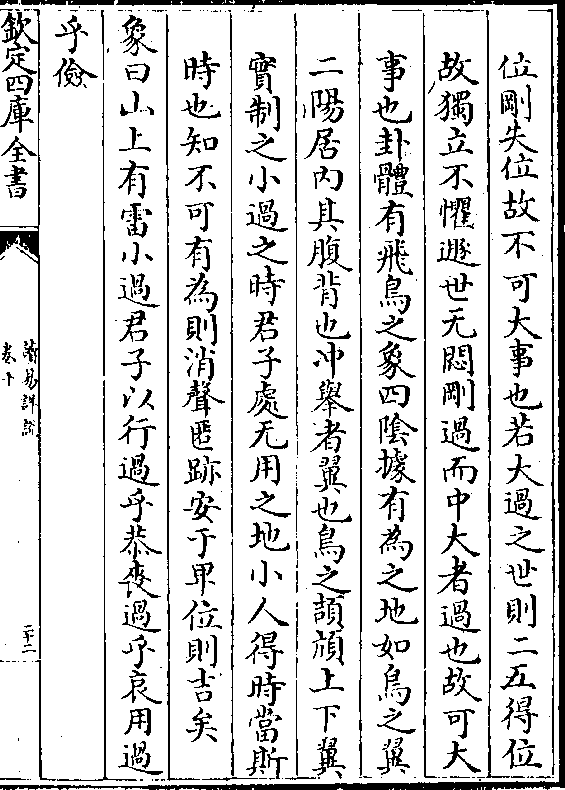 位剛失位故不可大事也若大過之世則二五得位
故獨立不懼遯世无悶剛過而中大者過也故可大
事也卦體有飛鳥之象四陰據有為之地如鳥之翼
二陽居內其腹背也冲舉者翼也鳥之頡頏上下翼
實制之小過之時君子處无用之地小人得時當斯
時也知不可有為則消聲匿跡安于卑位則吉矣
象曰山上有雷小過君子以行過乎恭喪過乎哀用過
乎儉
欽定四庫全書
讀易詳說
卷十
二十二